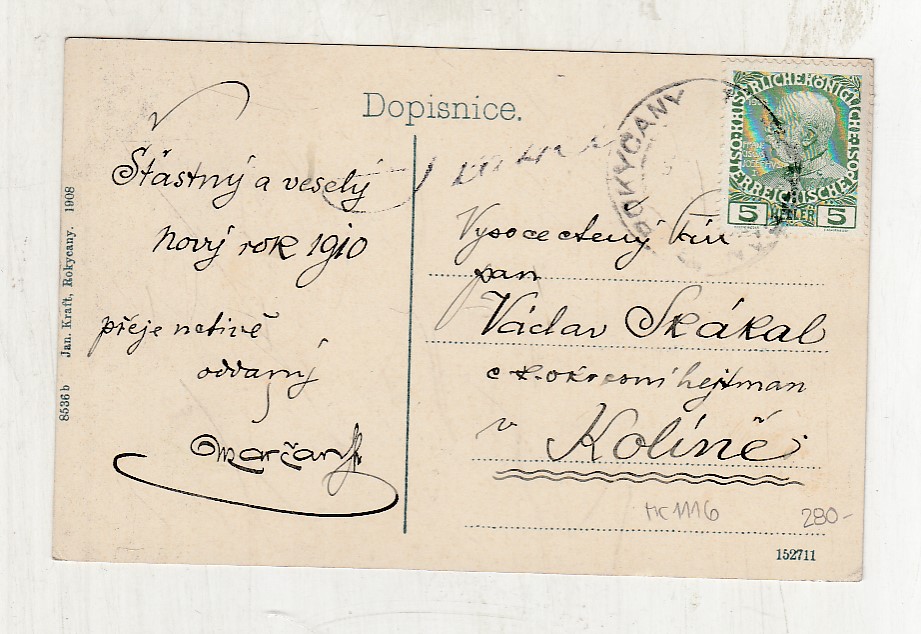 Dopisnice.
Šťastný a veselý
nový rok 1910
přeje uctivě
oddaný
8536 b Jan. Kraft, Rokycany. 1908
ROKYCANY
KAISERLICHE KÖNIGLICHE ÖSTERREICHISCHE POST
5 HELLER 5
Vysoce ctěný
pan
Václav Skákal
c. k. okresní hejtman
v Kolíně
MC 1116
280-
152711